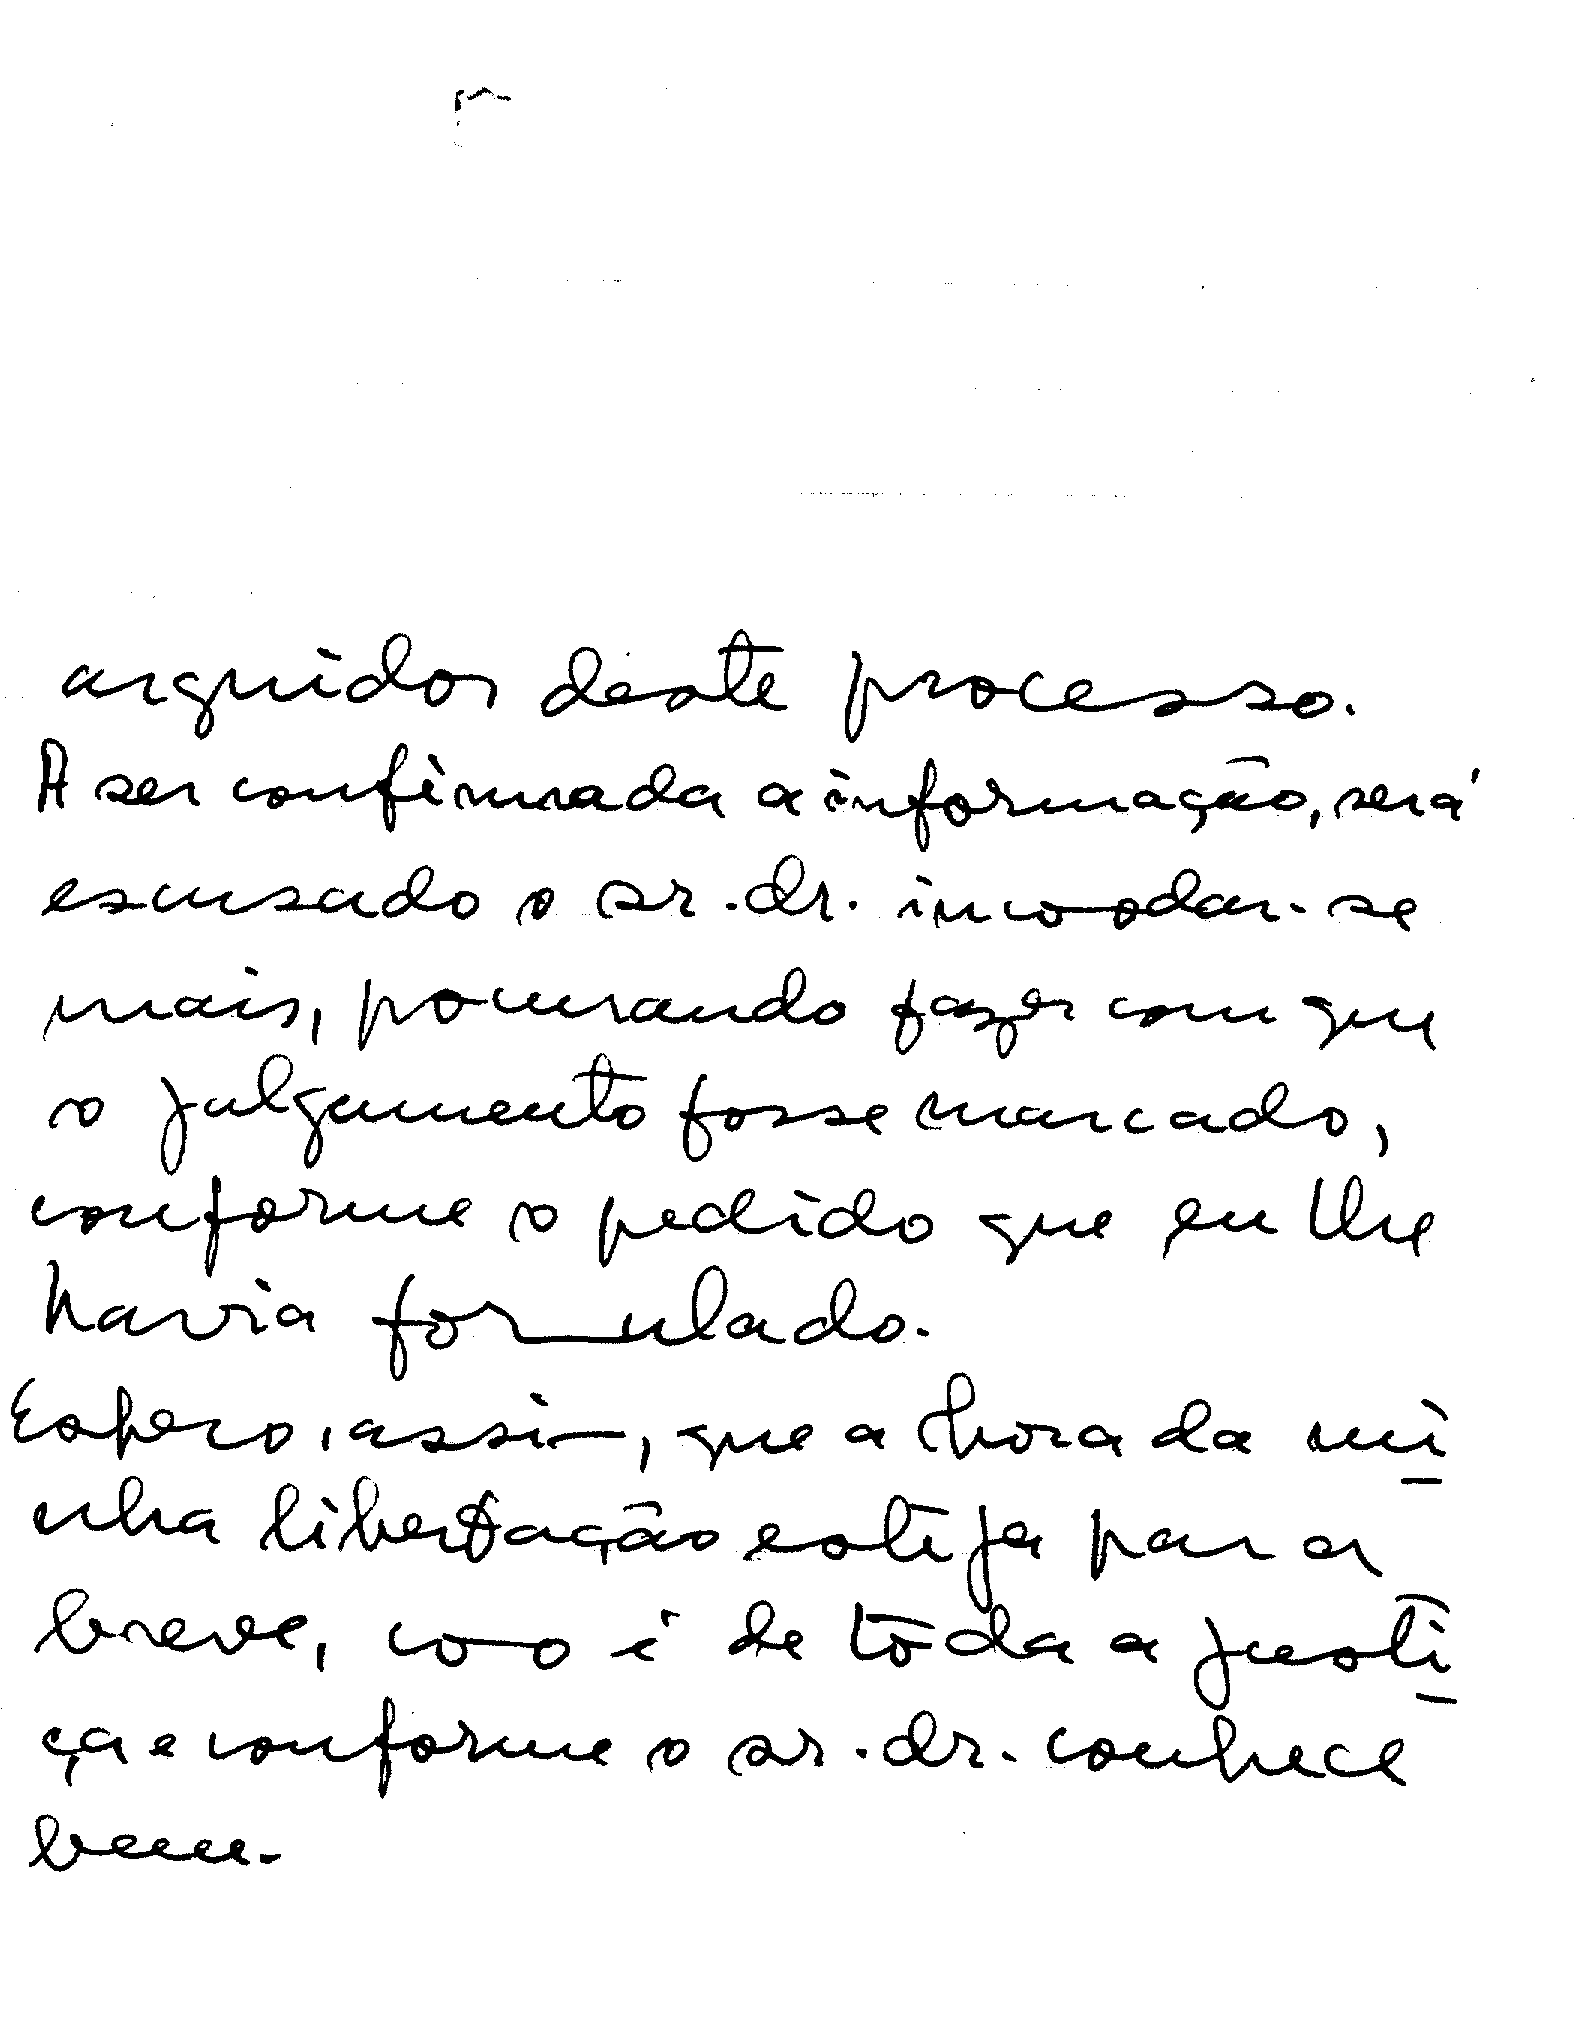 arguidos deste processo.
A ser confirmada a informação, será
escusado o sr. dr. incomodar-se
mais, procurando fazer com que
o julgamento fosse marcado,
conforme o pedido que eu lhe
havia formulado.
Espero, assim, que a hora da mi
nha libertação esteja para
breve, como é de tôda a justi
ça e conforme o sr. dr. conhece
bem.